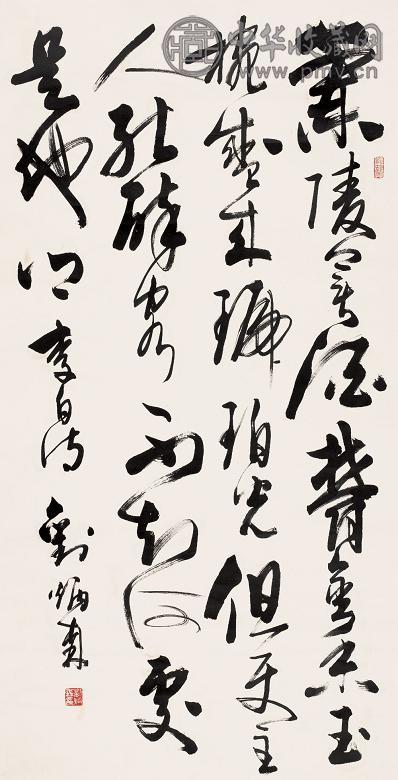 中华收藏网
www.pmv.cn
蘭陵美酒鬱金香玉
椀盛来琥珀光但使主
人能醉客不知何處
是他鄉 李白詩 劉炳森